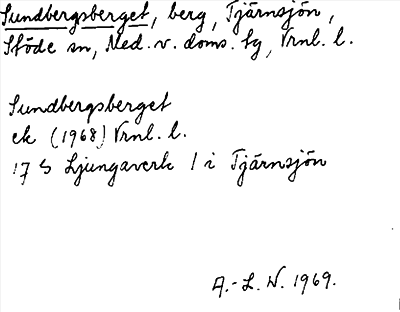 Sundbergsberget, berg, Tjärnsjön,
Stöde sn, Ned. v. doms. tg, Vrnl. l.
Sundbergsberget
ek (1968) Vrnl. l.
17 S Ljungaverk 1 i Tjärnsjön
A.-L. N. 1969.